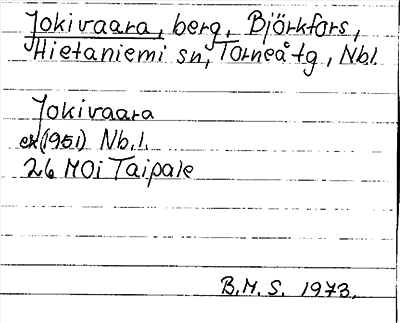 Jokivaara, berg, Björkfors,
Hietaniemi sn, Torneå tg, Nbl.
Jokivaara
ek(1951) Nb.l.
26 MOi Taipale
B.M.S. 1973.